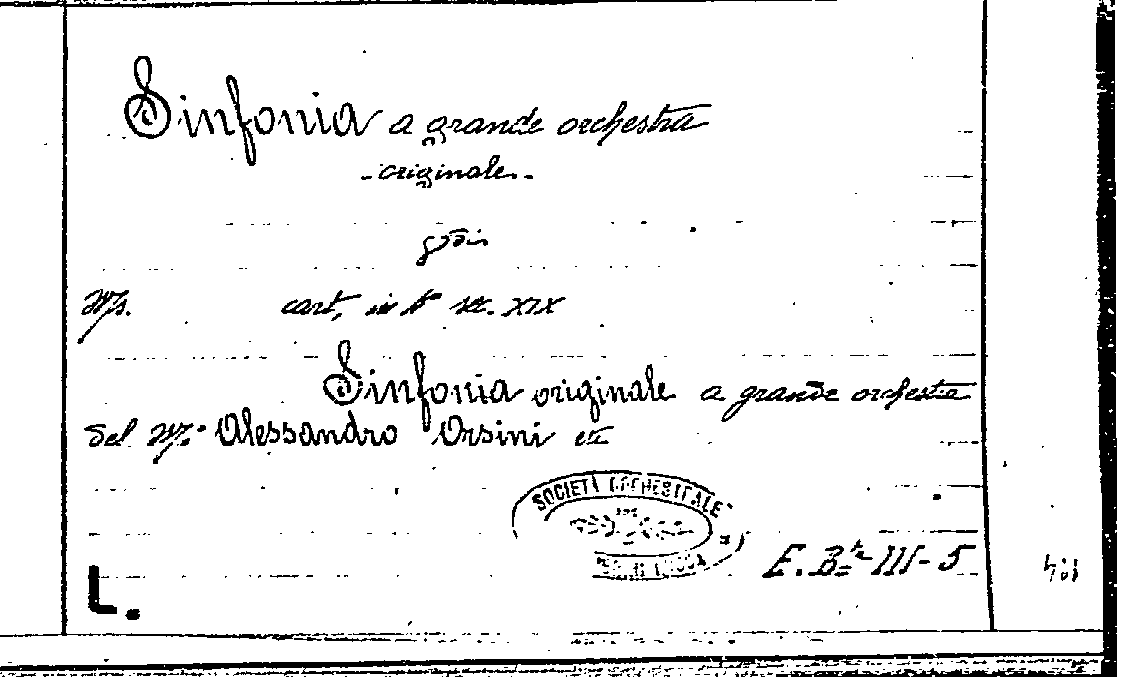 Sinfonia a grande orchestra
- originale -
Ms. cart, in 4° sec. XIX
Sinfonia originale a grande orchestra
del M.° Alessandro Orsini etc
SOCIETÀ ORCHESTRALE
E. B=ª-III-5
L.